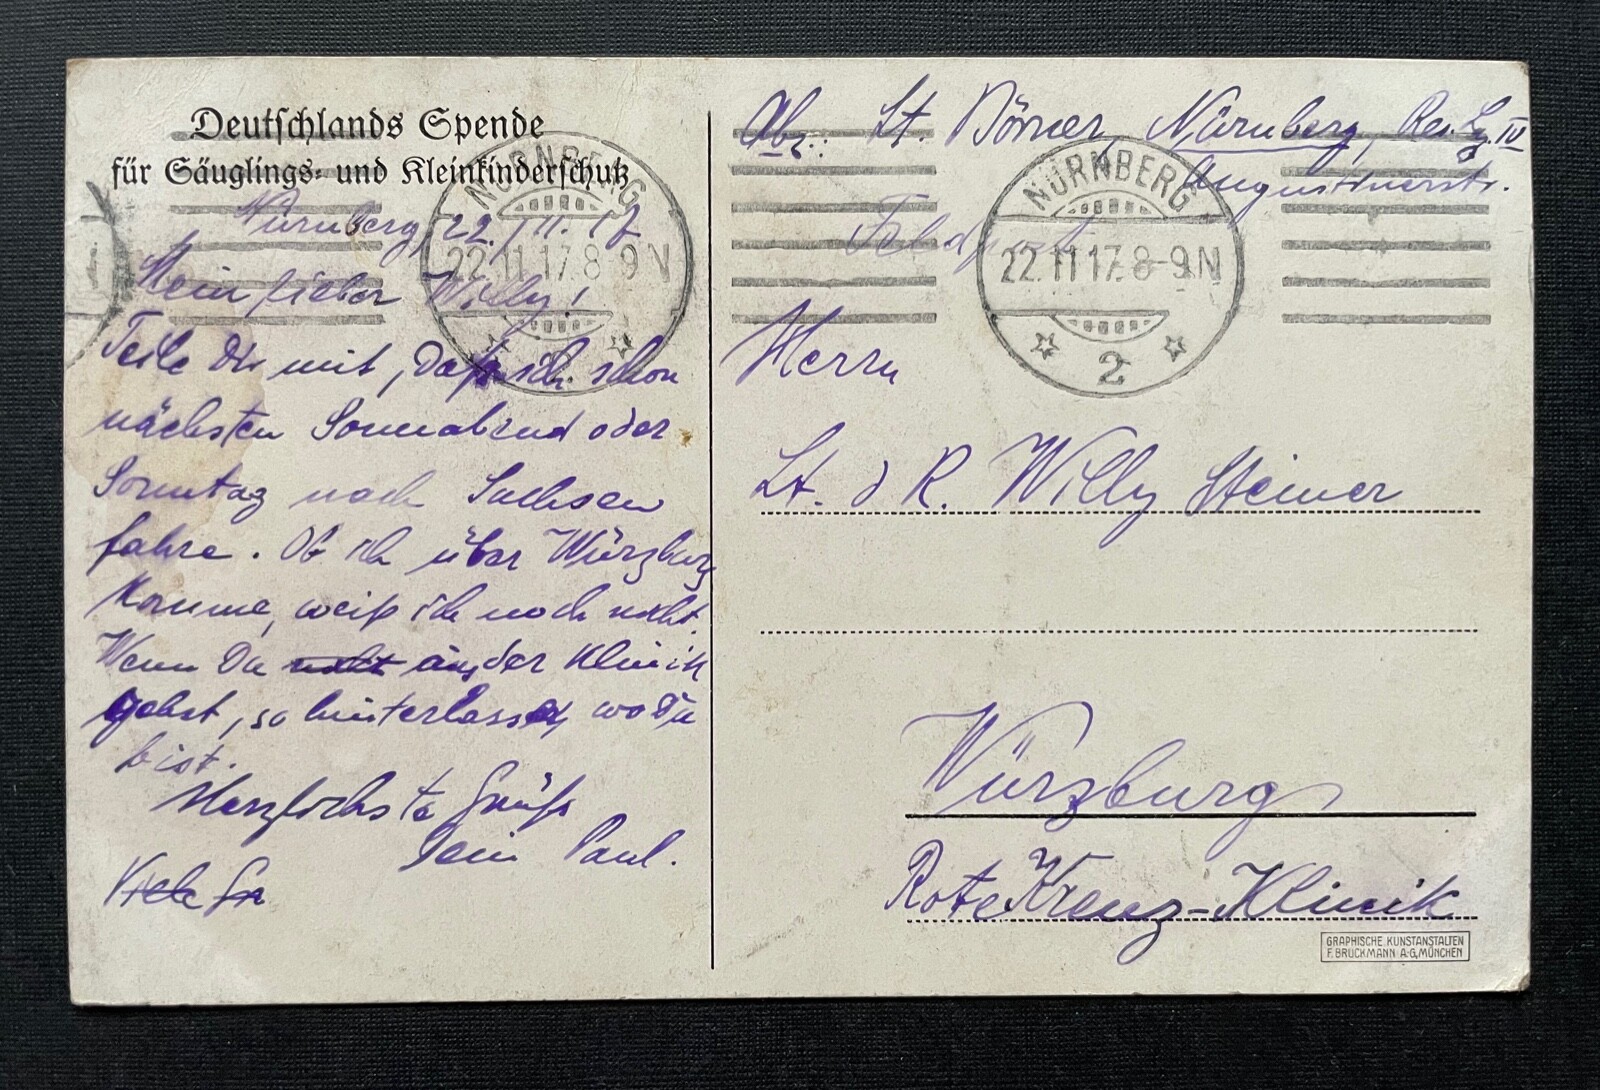 Deutschlands Spende
für Säuglings- und Kleinkinderschutz
Nürnberg, 22. 11. 17
Mein lieber Willy!
Teile Dir mit, daß ich schon
nächsten Sonnabend oder
Sonntag nach Sachsen
fahre. Ob ich über Würzburg
komme, weiß ich noch nicht.
Wenn Du nicht aus der Klinik
gehst, so hinterlass, wo Du
bist.
Herzlichste Grüße
Dein Paul.
Viele Gr
Abs.: Lt. Börner, Nürnberg, Res. Lz. IV
Augustinerstr.
Feldpost
NÜRNBERG
22.11.17. 8-9 N
2
NÜRNBERG
22.11.17. 8-9 N
Herrn
Lt. d R. Willy Steiner
Würzburg
Rote Kreuz-Klinik
GRAPHISCHE KUNSTANSTALTEN
F. BRUCKMANN A.G., MÜNCHEN